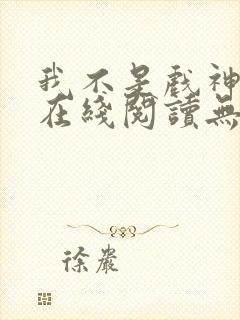 我不是戲神
在綫閱讀無
徐嚴